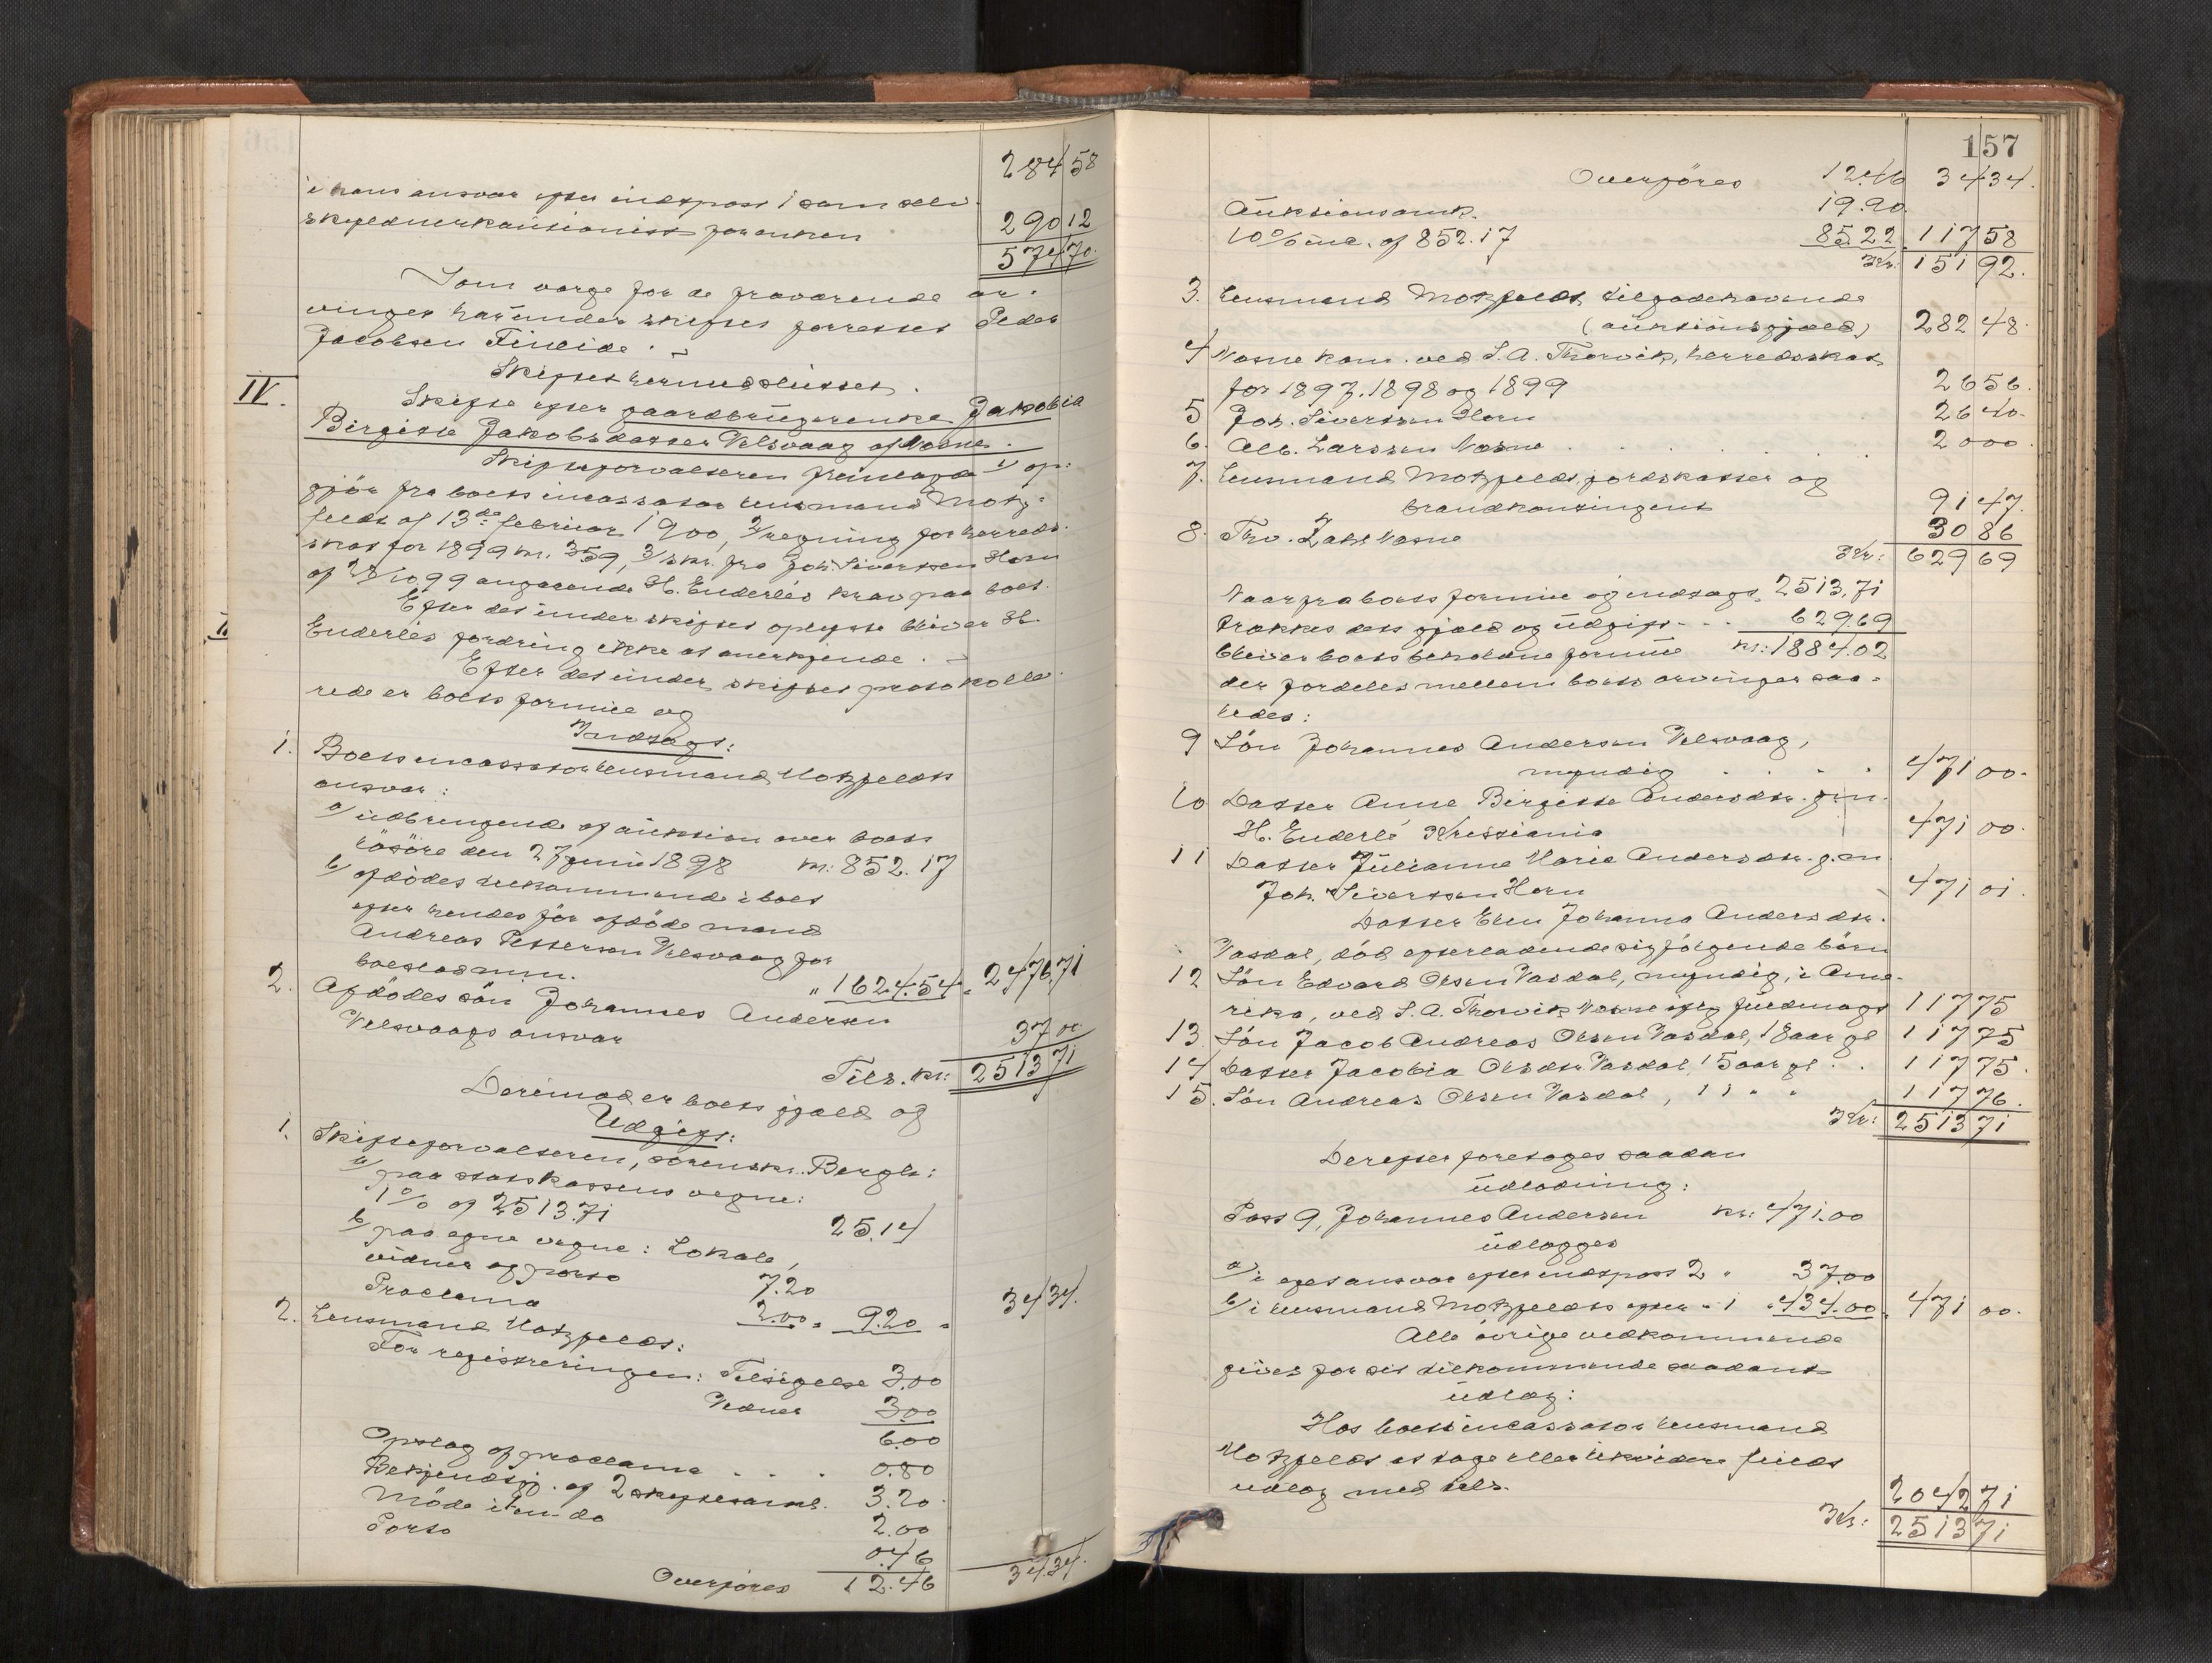 284 58
i hans ansvar efter indtpost 1 som selv-
skyldnerkautionist for enken 290 12
574 70
Som værge for de fraværende ar-
vinger herunder skiftet forrettet Peder
Jacobsen Finvide.
Skiftet hermed sluttet.
IV. Skifte efter gaardbrugerenke Jakobia
Birgitte Jakobsdatter Velsvaag af Nesne.
Skifteforvalteren fremlagde 1/ op-
gjør fra boets incassator lensmand Motz-
feldt af 13de februar 1900, 2/ regning for herreds-
skat for 1899 kr. 359, 3/ skr. fra Joh. Sivertsen Horn
af 28/10 99 angaaende H. Enderlés krav paa boet.
Efter det under skiftet oplyste bliver H.
Enderlés fordring ikke at anerkjende.
Efter det under skiftet protokolle-
rede er boets formue og
Indtægt:
1. Boets incassator lensmand Motzfeldts
ansvar:
a/ udbringende af auktion over boets
løsøre den 27 juni 1898 kr: 852.17
b/ afdødes tilkommende i boet
efter hendes før afdøde mand
Andreas Pettersen Velsvaag for
boeslodmin. " 1624.54 = 2476 71
2. Afdødes søn Johannes Andersen
Velsvaags ansvar 37 00
Tils. kr: 2513 71
Derimod er boets gjæld og
Udgift:
1. Skifteforvalteren, sorenskr. Bergh:
a/ paa statskassens vegne:
1% af 2513.71 25.14
b/ paa egne vegne: Lokale,
vidner og porto 7.20
Proclama 2.00 = 9.20 = 34 34.
2. Lensmand Motzfeldt:
For registreringen: Tilsigelse 3.00
Vidner 3.00
6.00
Opslag af proclama . . . 0.80
Bekjendtgj. af 2 skiftesaml. 3.20
Møde i en do 2.00
Porto 0.46
Overføres 12.46 34.34.
157
Overføres 12.46 34 34.
Auktionsomk. 19.90
10% ink. af 852.17 85 22 117 58
Kr: 151 92.
3. Lensmand Motzfeldts tilgodehavende
(auktionsgjæld) 282 48.
4 Nesne kom. ved S. A. Thorvik, herredsskat
for 1897. 1898 og 1899 26 56.
5 Joh. Sivertsen Horn 26 40.
6. Alb. Larssen Nesne . . . 20 00.
7. Lensmand Motzfeldt, jordskatter og
brandkontingent 91 47.
8. Thv. Zahl Nesne 30 86
Kr: 629 69
Naar fra boets formue og indtægt 2513,71
trækkes dets gjæld og udgift - - . 629.69
bliver boets beholdne formue kr: 1884.02
der fordeles mellem boets arvinger saa-
ledes:
9 Søn Johannes Andersen Velsvaag,
myndig . . . . 471 00.
10 Datter Anne Birgitte Andersdtr. g. m.
H. Enderlé Kristiania 471 00.
11 Datter Julianne Marie Andersdtr. g. m.
Joh. Sivertsen Horn 471 01.
Datter Elen Johanna Andersdtr.
Vasdal, død efterladende sig følgende børn
12 Søn Edvard Olsen Vasdal, myndig, i Ame-
rika, ved S. A. Thorvik Nesne ifølg fuldmagt 117 75
13. Søn Jacob Andreas Olsen Vasdal, 18 aar gl 117 75
14 Datter Jacobia Olsdtr. Vasdal, 15 aar gl . . 117 75.
15. Søn Andreas Olsen Vasdal, 11 " " 117 76.
Kr: 2513 71
Derefter foretoges saadan
udlodning:
Post 9, Johannes Andersen kr: 471.00
udlægges
a/ i eget ansvar efter indtpost 2 " 37.00
b/ i lensmand Motzfeldts efter " 1 " 434.00 = 471 00.
Alle øvrige vedkommende
gives for sit tilkommende saadant
udlæg:
Hos boets incassator lensmand
Motzfeldt at tage eller likvidere fuldt
udlæg med tils. 2042 71
Kr: 2513 71